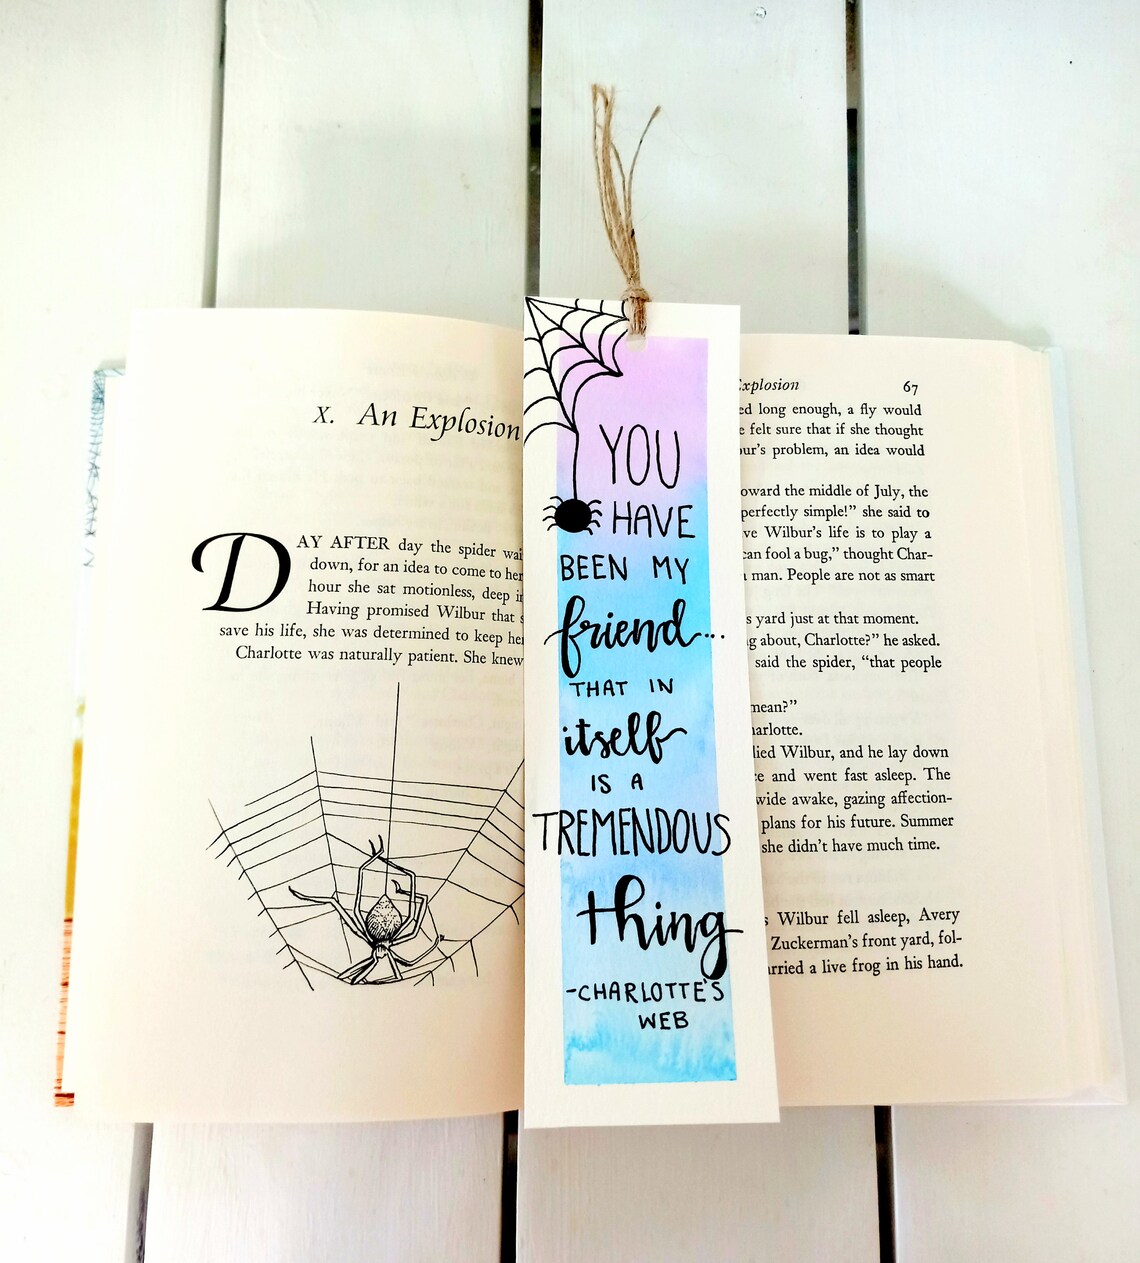 X. An Explosion
DAY AFTER day the spider
down, for an idea to come to her
hour she sat motionless, deep
Having promised Wilbur that
save his life, she was determined to keep
Charlotte was naturally patient. She knew
YOU
HAVE
BEEN MY
friend...
THAT IN
itself
IS A
TREMENDOUS
thing
-CHARLOTTE'S
WEB
Explosion 67
long enough, a fly would
felt sure that if she thought
problem, an idea would
the middle of July, the
perfectly simple!” she said to
Wilbur’s life is to play a
can fool a bug,” thought Char-
man. People are not as smart
yard just at that moment.
about, Charlotte?” he asked.
said the spider, “that people
mean?”
Charlotte.
Wilbur, and he lay down
and went fast asleep. The
wide awake, gazing affection-
plans for his future. Summer
she didn’t have much time.
Wilbur fell asleep, Avery
Zuckerman’s front yard, fol-
a live frog in his hand.